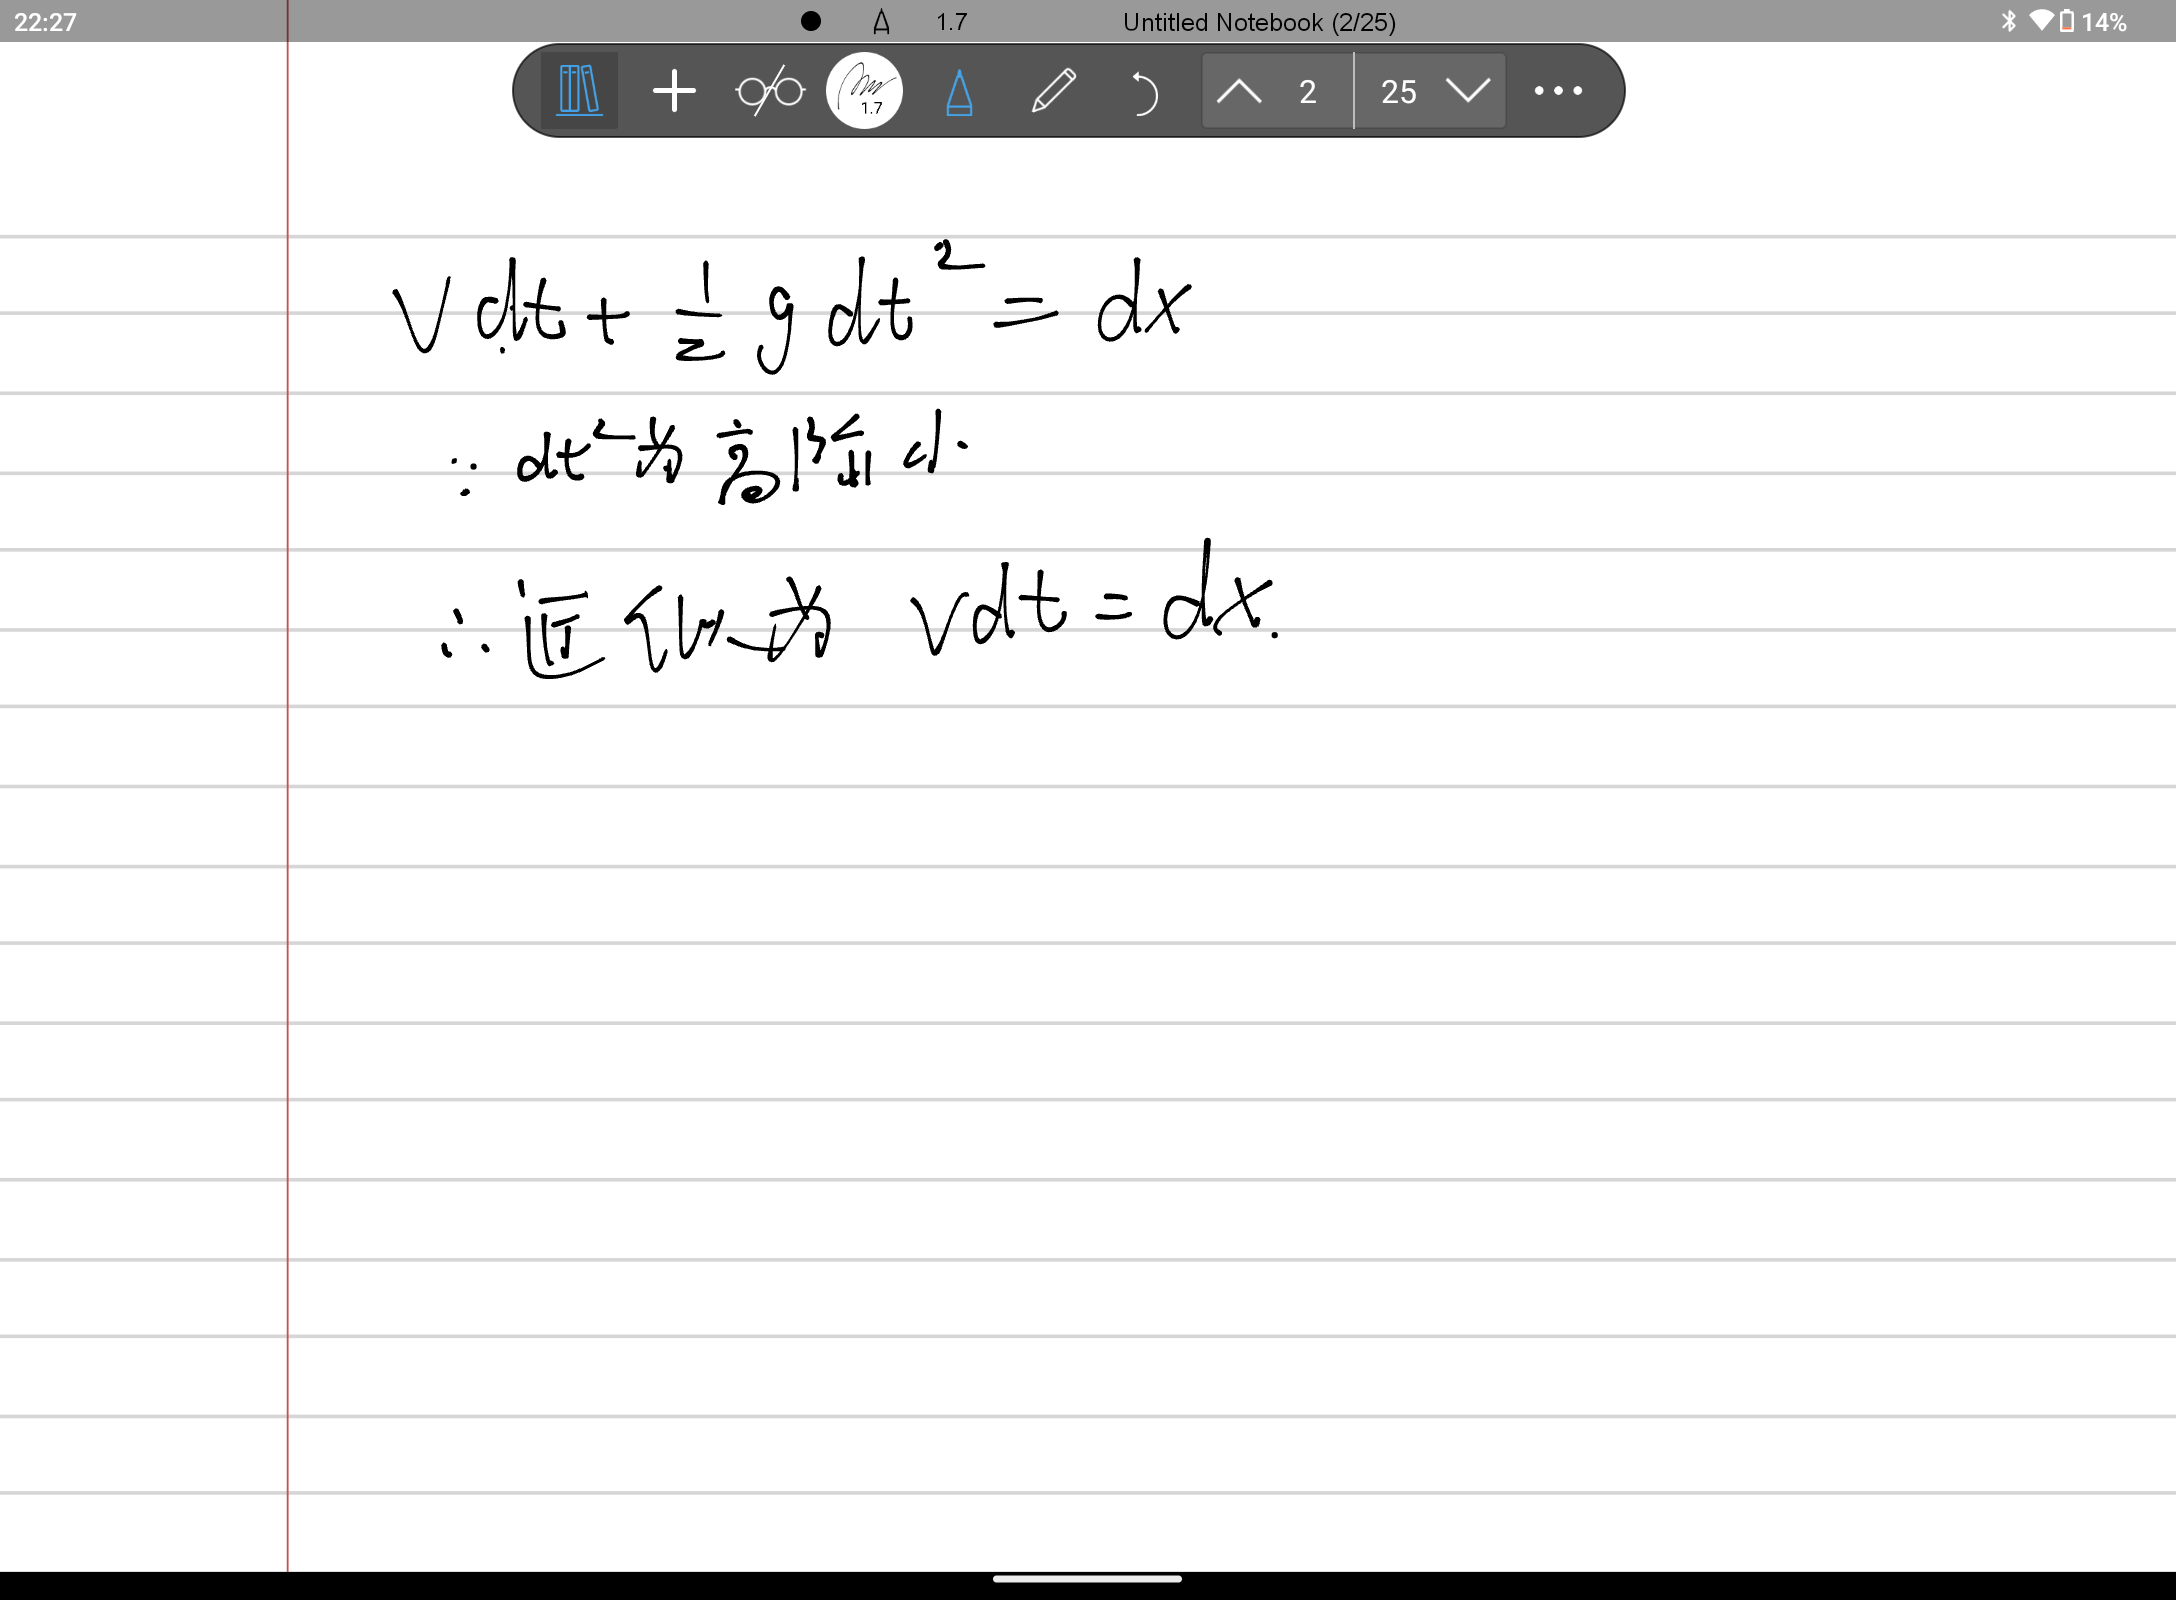 22:27 1.7 Untitled Notebook (2/25) 14%
1.7 2 25
Vdt + 1/2 g dt² = dx
∵ dt² 为高阶小.
∴ 近似为 vdt = dx.